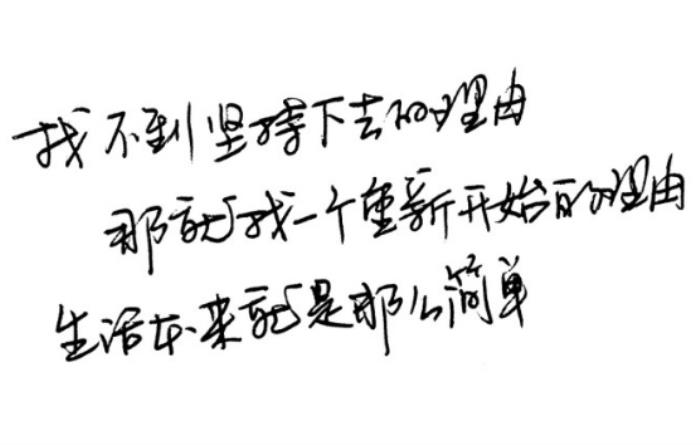 找不到坚持下去的理由
那就找一个重新开始的理由
生活本来就是那么简单